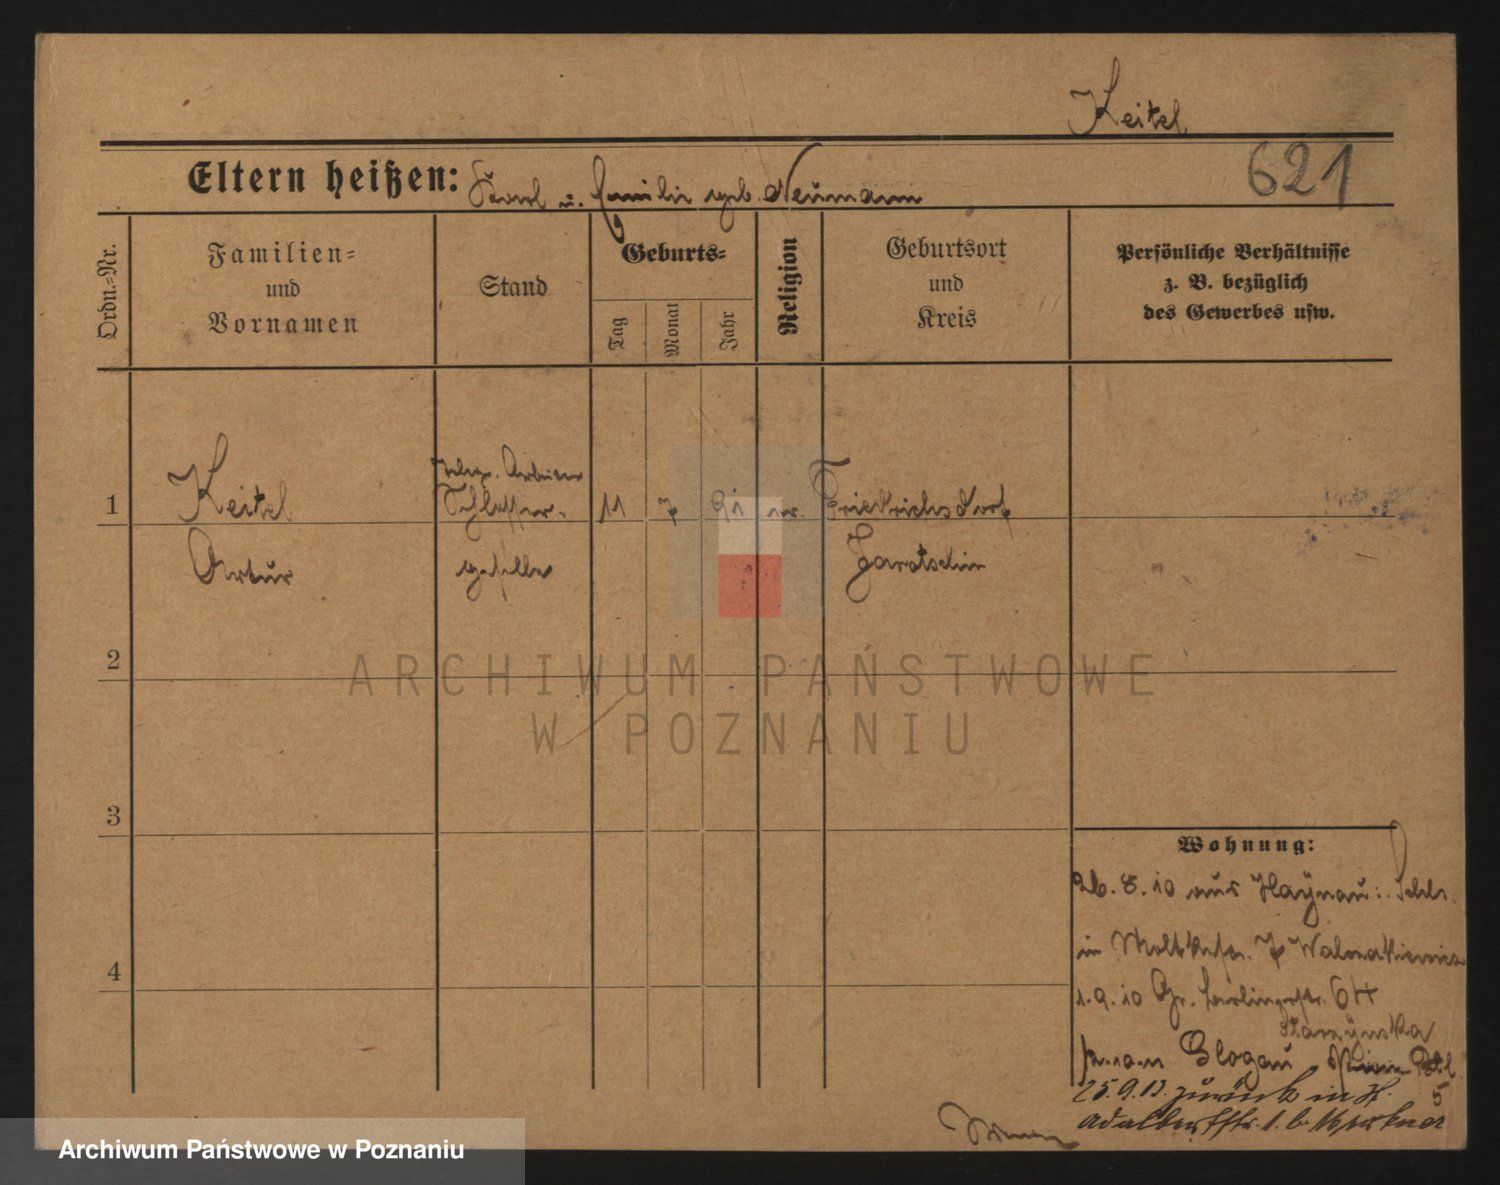 Keitel
621
Eltern heißen: Karl u. Emilie geb. Neumann
Ordn.-Nr.
Familien-
und
Vornamen
Stand
Geburts-
Tag
Monat
Jahr
Religion
Geburtsort
und
Kreis
Persönliche Verhältnisse
z. B. bezüglich
des Gewerbes usw.
Arbeiter
1 Keitel Schlosser- 11 7 91 ev. Friedrichsdorf
Artur geselle Jarotschin
2
ARCHIWUM PAŃSTWOWE
W POZNANIU
3
Wohnung:
26. 8. 10 aus Haynau: Schles.
in Moltkestr. 7
4
1. 9. 10 Gr. Berlinerstr. 64
Starzynska
Glogau Pionier Btl.
5
25. 9. 13. zurück in
Adalbertstr. 1. b.
Archiwum Państwowe w Poznaniu